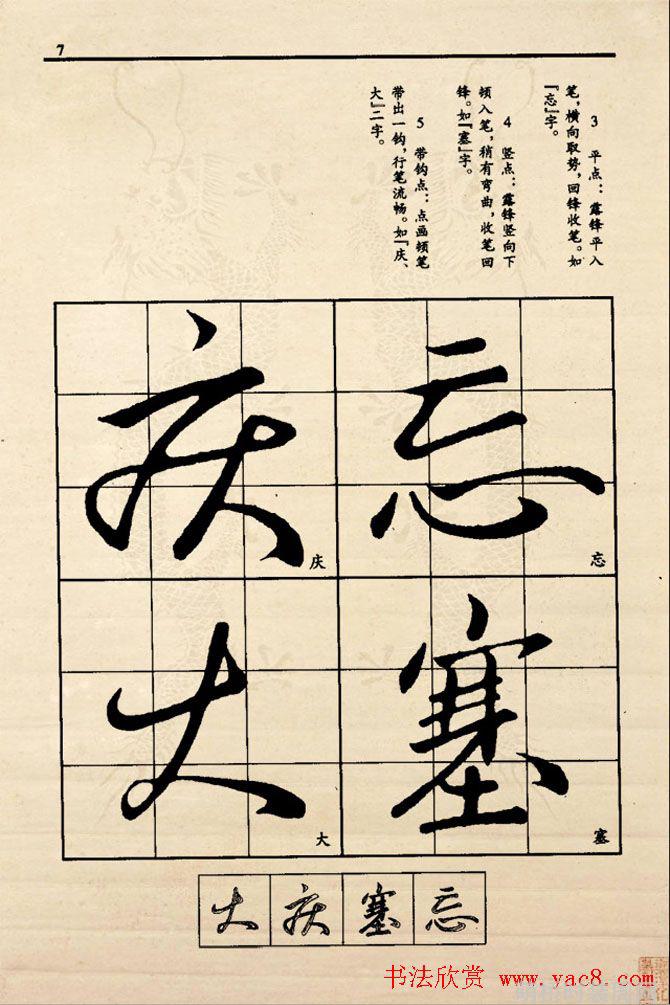 7
3 平点：露锋平入
笔，横向取势，回锋收笔。如
『忘』字。
4 竖点：露锋竖向下
顿入笔，稍有弯曲，收笔回
锋。如『塞』字。
5 带钩点：点画顿笔
带出一钩，行笔流畅。如『庆、
大』二字。
忘
忘
庆
庆
塞
塞
大
大
大 庆 塞 忘
书法欣赏 www.yac8.com